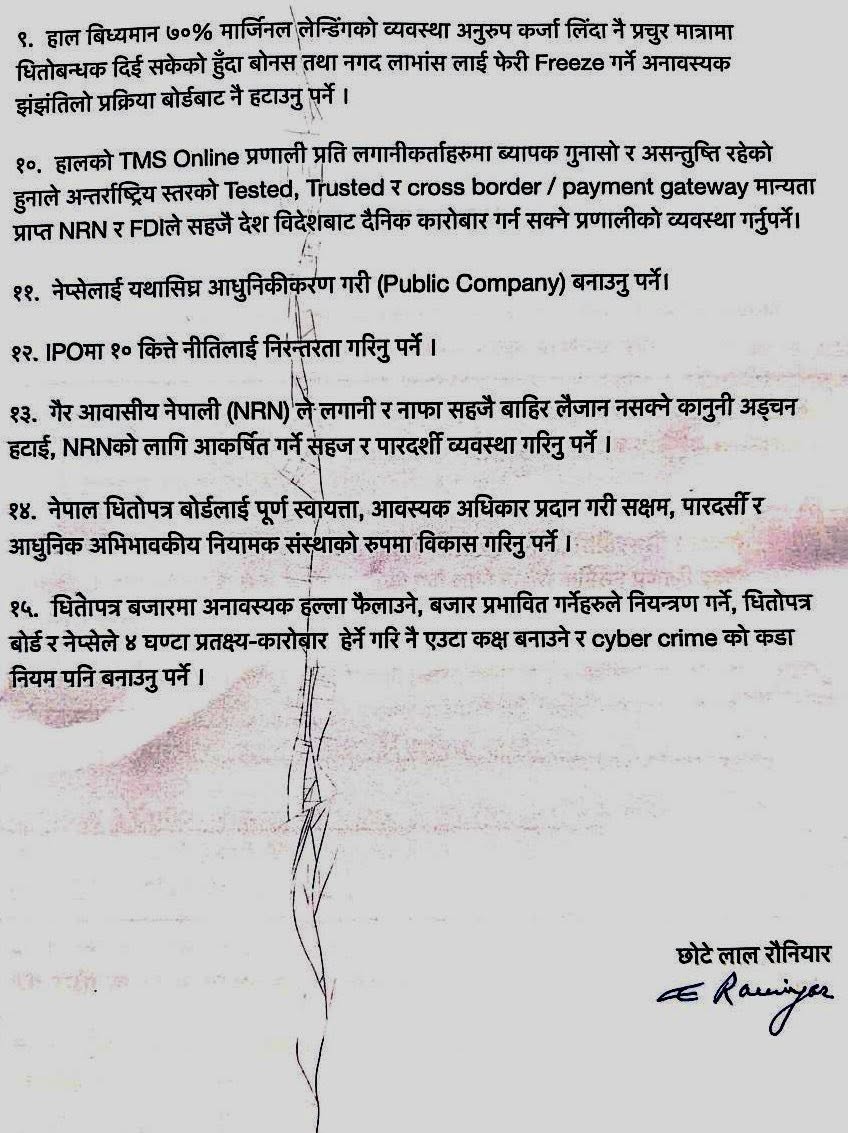 ९. हाल बिध्यमान ७०% मार्जिनल लेन्डिंगको व्यवस्था अनुरुप कर्जा लिंदा नै प्रचुर मात्रामा
धितोबन्धक दिई सकेको हुँदा बोनस तथा नगद लाभांस लाई फेरी Freeze गर्ने अनावस्यक
झंझंतिलो प्रक्रिया बोर्डबाट नै हटाउनु पर्ने ।
१०. हालको TMS Online प्रणाली प्रति लगानीकर्ताहरुमा ब्यापक गुनासो र असन्तुष्ति रहेको
हुनाले अन्तर्राष्ट्रिय स्तरको Tested, Trusted र cross border / payment gateway मान्यता
प्राप्त NRN र FDIले सहजै देश विदेशबाट दैनिक कारोबार गर्न सक्ने प्रणालीको व्यवस्था गर्नुपर्ने।
११. नेप्सेलाई यथासिघ्र आधुनिकीकरण गरी (Public Company) बनाउनु पर्ने।
१२. IPOमा १० कित्ते नीतिलाई निरन्तरता गरिनु पर्ने ।
१३. गैर आवासीय नेपाली (NRN) ले लगानी र नाफा सहजै बाहिर लैजान नसक्ने कानुनी अड्चन
हटाई, NRNको लागि आकर्षित गर्ने सहज र पारदर्शी व्यवस्था गरिनु पर्ने ।
१४. नेपाल धितोपत्र बोर्डलाई पूर्ण स्वायत्ता, आवस्यक अधिकार प्रदान गरी सक्षम, पारदर्सी र
आधुनिक अभिभावकीय नियामक संस्थाको रुपमा विकास गरिनु पर्ने ।
१५. धितोपत्र बजारमा अनावस्यक हल्ला फैलाउने, बजार प्रभावित गर्नेहरुले नियन्त्रण गर्ने, धितोपत्र
बोर्ड र नेप्सेले ४ घण्टा प्रतक्ष्य-कारोबार हेर्ने गरि नै एउटा कक्ष बनाउने र cyber crime को कडा
नियम पनि बनाउनु पर्ने ।
छोटे लाल रौनियार
Rauniyar